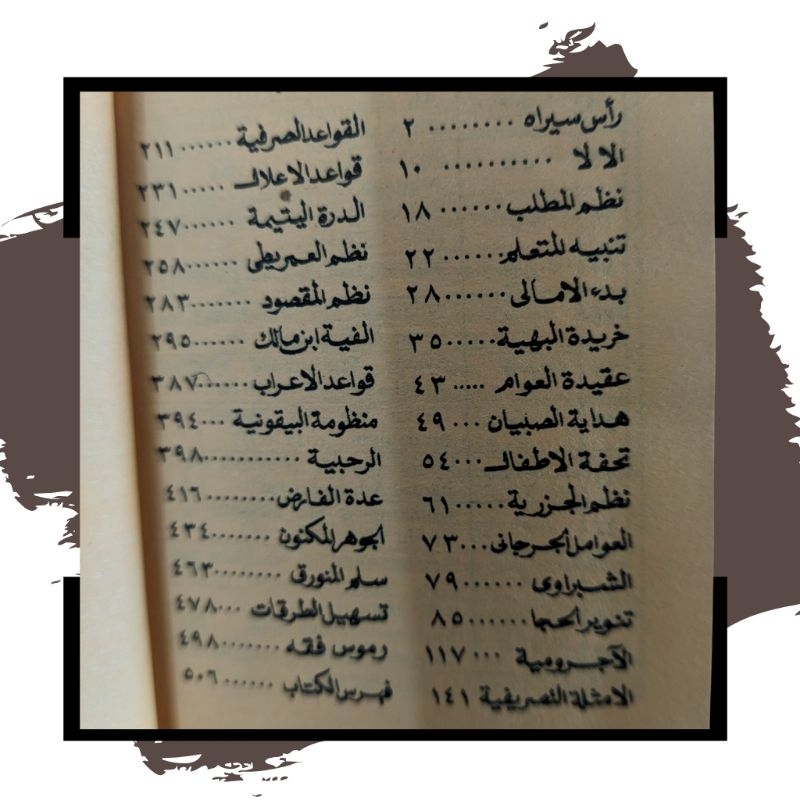 رأس سيراه ........ ٢
الا لا ........... ١٠
نظم المطلب ...... ١٨
تنبيه المتعلم ...... ٢٢
بدء الامالى ...... ٢٨
خريدة البهية ..... ٣٥
عقيدة العوام ..... ٤٣
هداية الصبيان ... ٤٩
تحفة الاطفال ... ٥٤
نظم الجزرية ..... ٦١
العوامل الجرجانى ... ٧٣
الشبراوى ....... ٧٩
تنوير الحجا ....... ٨٥
الآجرومية ... ١١٧
الامثلة التصريفية ١٤١
القواعد الصرفية ...... ٢١١
قواعد الاعلال ..... ٢٣١
الدرة اليتيمة ...... ٢٤٧
نظم العمريطى ...... ٢٥٨
نظم المقصود ....... ٢٨٣
الفية ابن مالك ...... ٢٩٥
قواعد الاعراب ...... ٣٨٧
منظومة البيقونية ... ٣٩٤
الرحبية ........... ٣٩٨
عدة الفارض ........ ٤١٦
الجوهر المكنون ...... ٤٣٤
سلم المنورق ........ ٤٦٣
تسهيل الطرقات ... ٤٧٨
رموس فقه ........ ٤٩٨
فهرس الكتاب ...... ٥٠٦